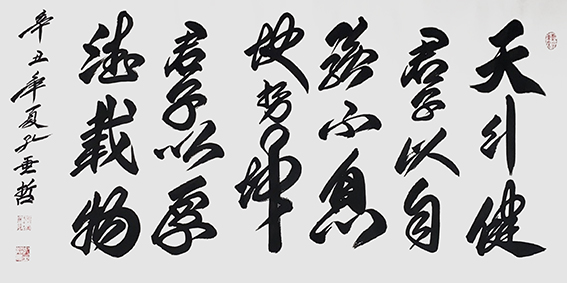 天行健
君子以自
强不息
地势坤
君子以厚
德载物
辛丑年夏孔垂哲